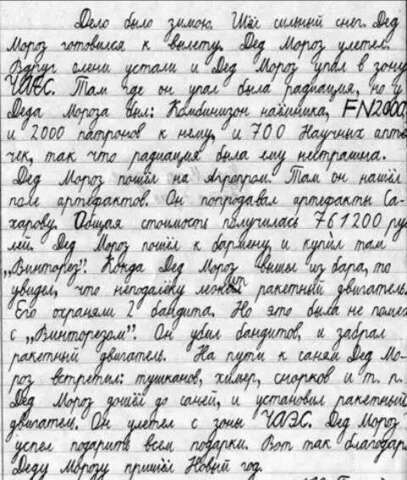 Дело было зимою. Шёл сильный снег. Дед
Мороз готовился к вылету. Дед Мороз улетел.
Вдруг олени устали и Дед Мороз упал в зону
ЧАЭС. Там где он упал была радиация, но у
Деда Мороза был: Комбинизон наёмника, FN2000,
и 2000 патронов к нему, и 700 Научных апте
чек, так что радиация была ему нестрашна.
Дед Мороз пошёл на Агропром. Там он нашёл
поле артефактов. Он попродавал артефакты Са-
харову. Общая стоимость получилась 761200 руб
лей. Дед Мороз пошёл к бармену, и купил там
„Винторез". Когда Дед Мороз вышы из бара, то
увидел, что неподалёку лежит ракетный двигатель.
Его охраняли 2 бандита. Но это была не помеха
с „Винторезом". Он убил бандитов, и забрал
ракетный двигатель. На пути к саням Дед Мо-
роз встретил: тушканов, химер, снорков и т. п.
Дед Мороз дошёл до саней, и установил ракетный
двигател. Он улетел с зоны ЧАЭС. Дед Мороз
успел подарить всем подарки. Вот так благодаря
Деду Морозу пришёл Новый год.